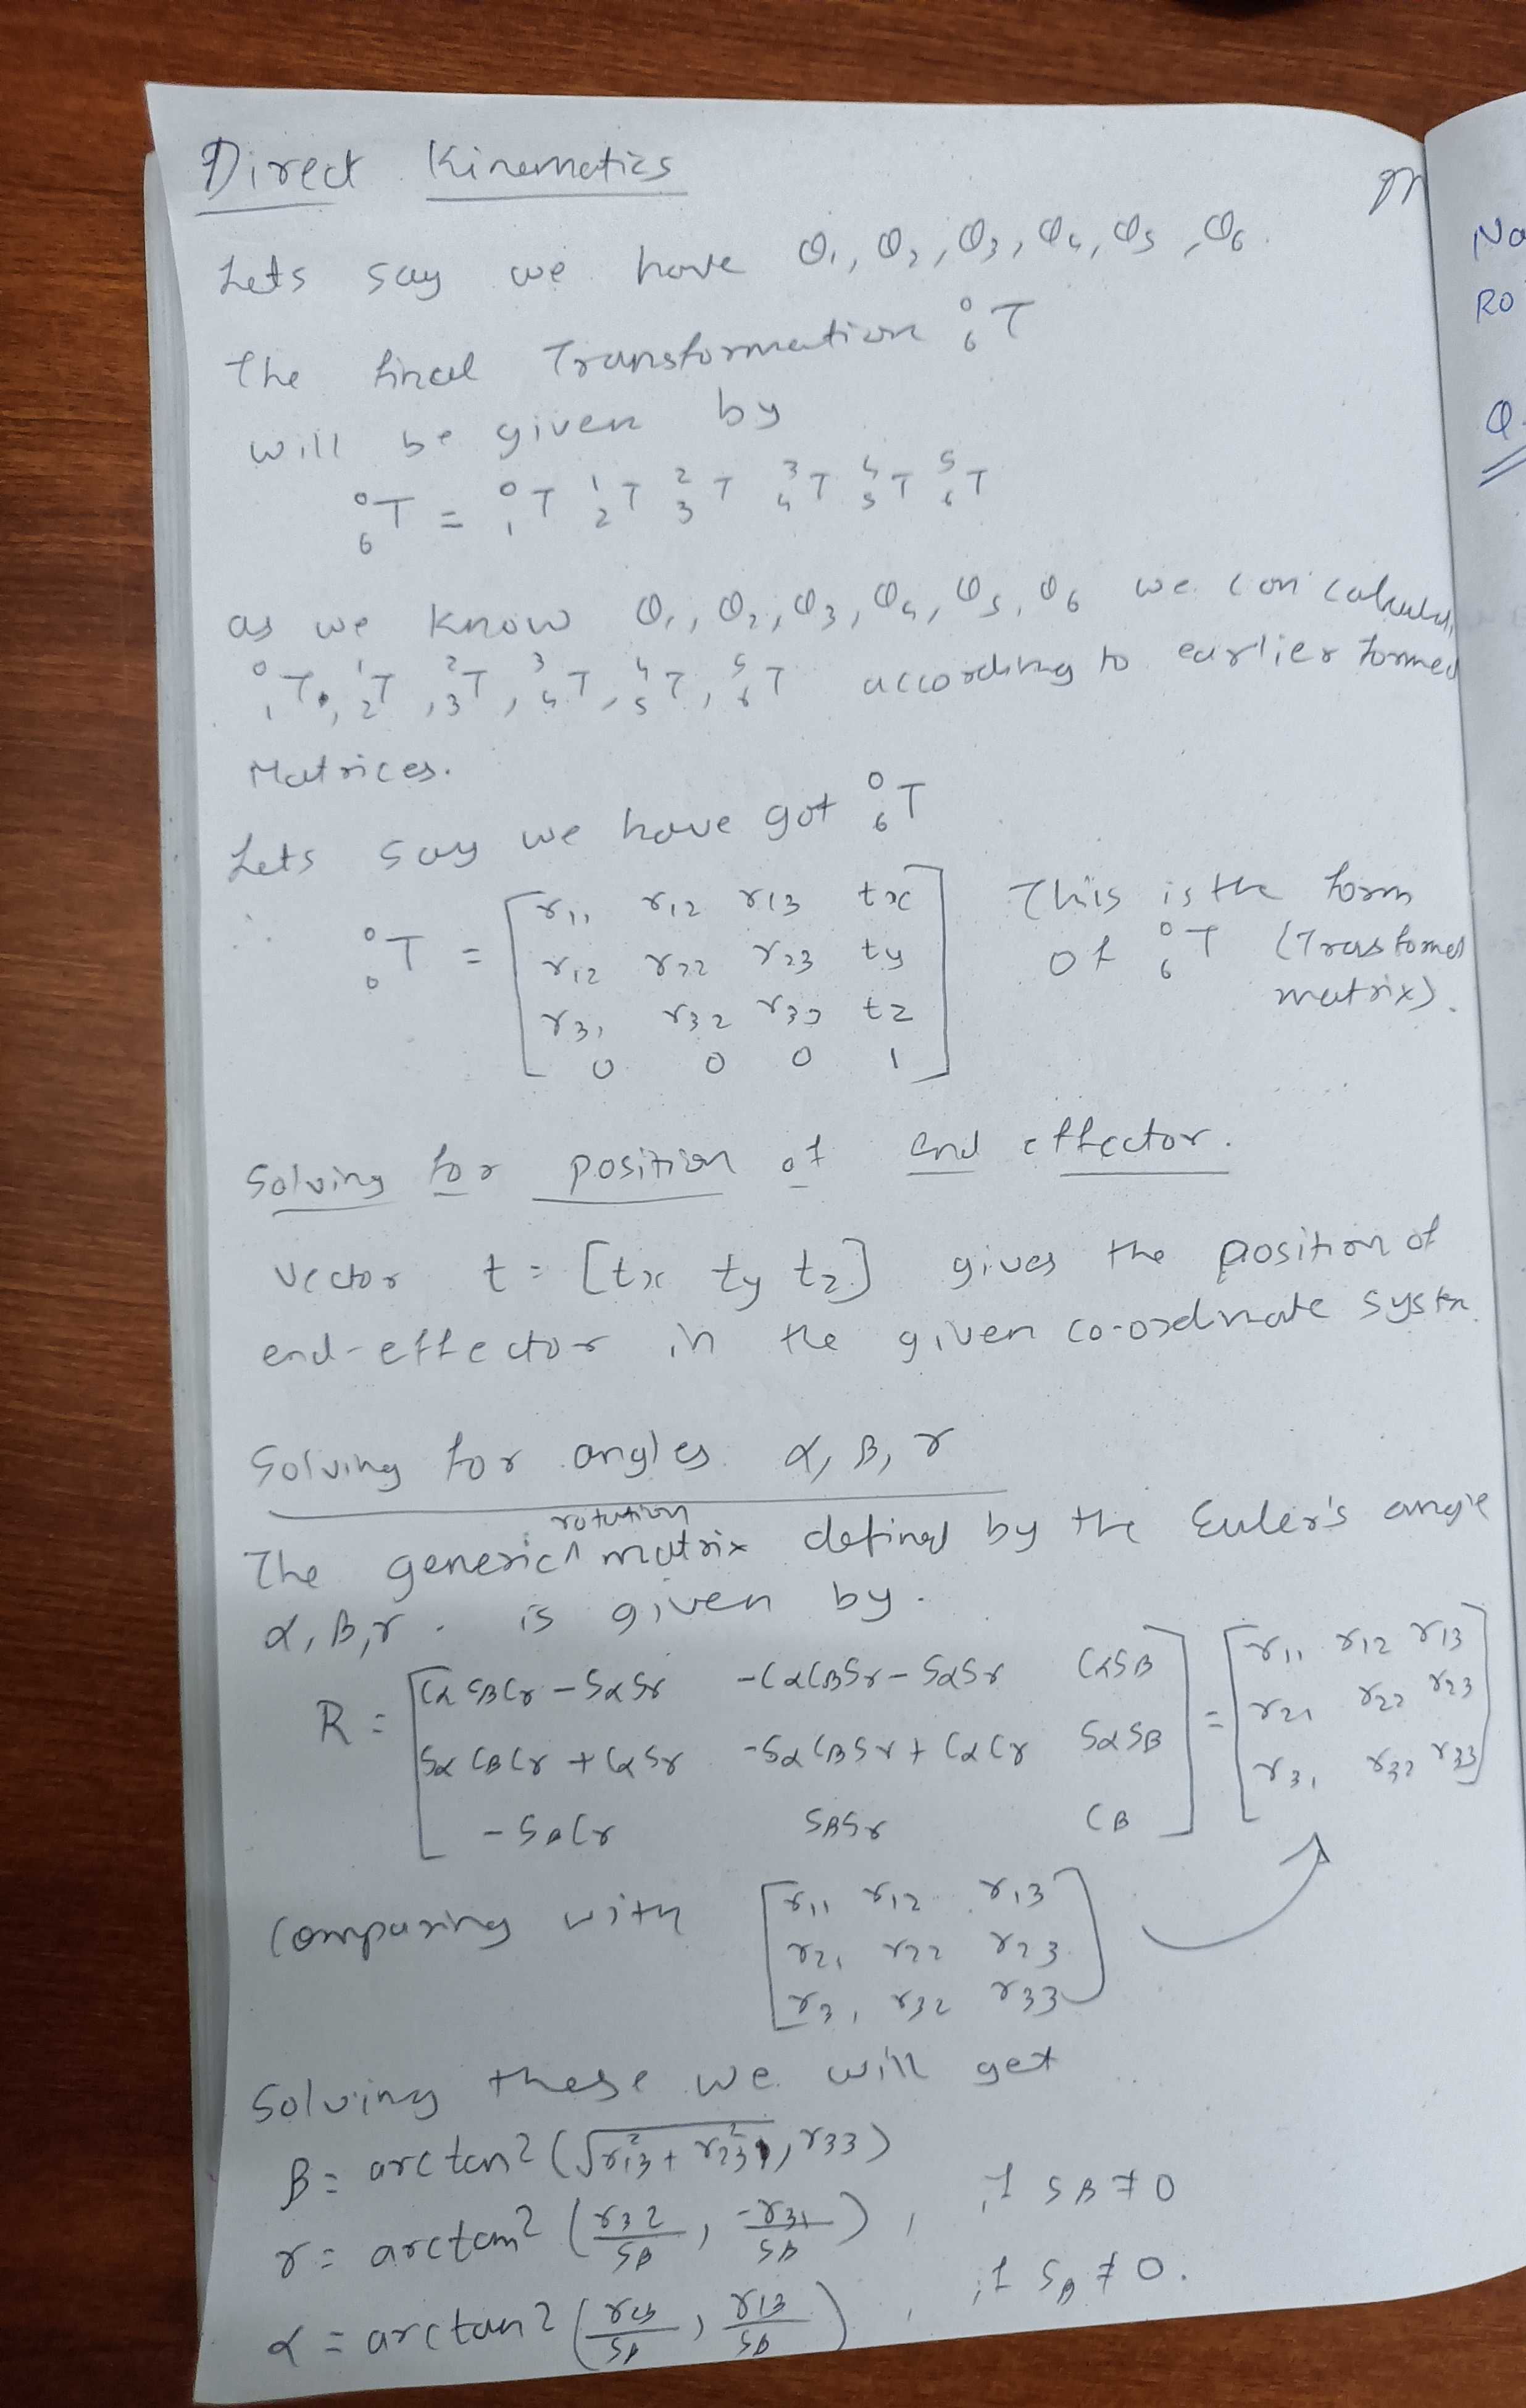 Direct Kinematics
Lets say we have θ₁, θ₂, θ₃, θ₄, θ₅, θ₆.
The final Transformation ⁰₆T
will be given by
⁰₆T = ⁰₁T ¹₂T ²₃T ³₄T ⁴₅T ⁵₆T
as we know θ₁, θ₂, θ₃, θ₄, θ₅, θ₆ we can
⁰₁T, ¹₂T, ²₃T, ³₄T, ⁴₅T, ⁵₆T according to earlier formed
Matrices.
Lets say we have got ⁰₆T
∴ ⁰₆T = [r₁₁ r₁₂ r₁₃ tx
r₁₂ r₂₂ r₂₃ ty
r₃₁ r₃₂ r₃₃ tz
0 0 0 1]
This is the form
of ⁰₆T
matrix).
Solving for position of end effector.
Vector t = [tx ty tz] gives the position of
end-effector in the given co-ordinate
Solving for angles α, β, r
The generic ^rotation matrix defined by the Euler's angle
α, β, r. is given by.
R = [CαSβCr - SαSr -CαCβSr - SαSr CαSβ
SαCβCr + CαSr -SαCβSr + CαCr SαSβ
-SβCr SβSr Cβ] = [r₁₁ r₁₂ r₁₃
r₂₁ r₂₂ r₂₃
r₃₁ r₃₂ r₃₃]
Comparing with [r₁₁ r₁₂ r₁₃
r₂₁ r₂₂ r₂₃
r₃₁ r₃₂ r₃₃]
Solving these we will get
β = arctan2(√r₁₃² + r₂₃², r₃₃)
r = arctan2 (r₃₂/Sβ, -r₃₁/Sβ), if Sβ ≠ 0
α = arctan2 (r₂₃/Sβ, r₁₃/Sβ), if Sβ ≠ 0.